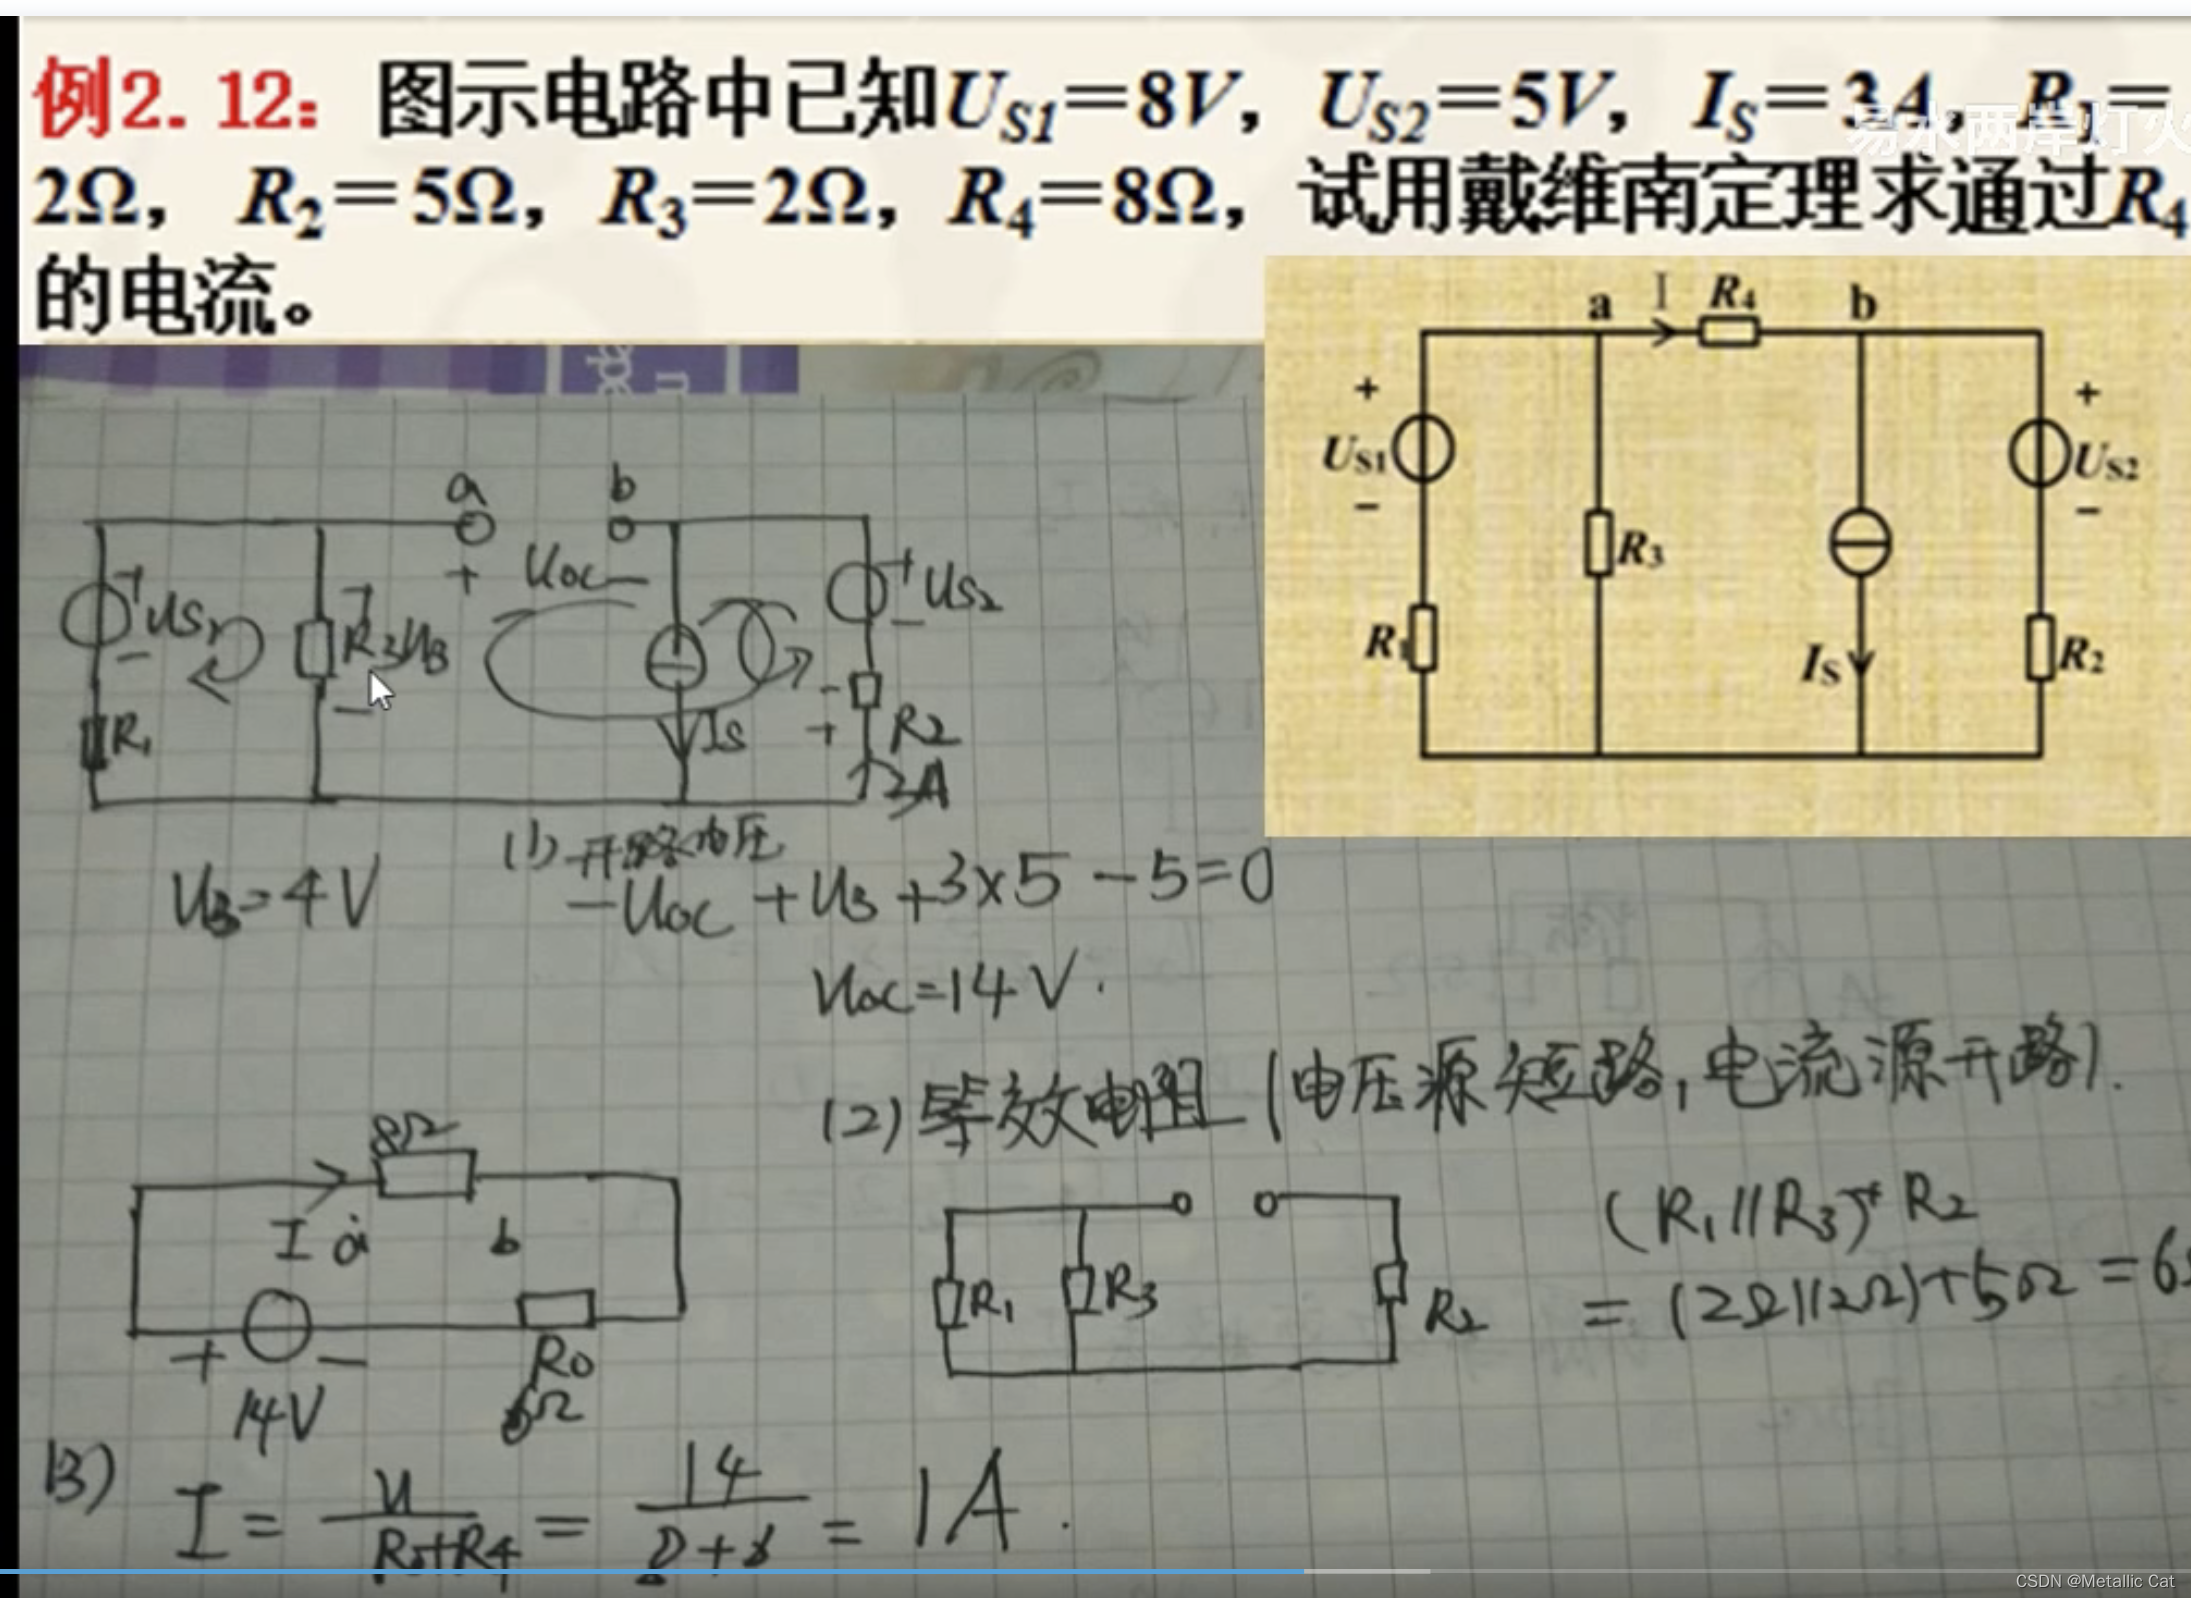 例2.12：图示电路中已知US1＝8V，US2＝5V，IS＝3A，R1＝
易水两岸灯火
2Ω，R2＝5Ω，R3＝2Ω，R4＝8Ω，试用戴维南定理求通过R4
的电流。
a I R4 b
+ +
US1 US2
− −
R3
R1 IS R2
a b
+ Uoc −
+ US1 − + R3 U3 − + US2 −
R1 IS − + R2
3A
(1) 开路电压
U3=4V −Uoc +U3 +3×5 −5=0
Uoc=14V.
(2) 等效电阻 (电压源短路,电流源开路).
8Ω
I a b
+ −
R0
14V 6Ω
R1 R3 R2
(R1//R3)+R2
=(2Ω//2Ω)+5Ω=6
(3) I = U/(R0+R4) = 14/(8+6) = 1A.
CSDN @Metallic Cat